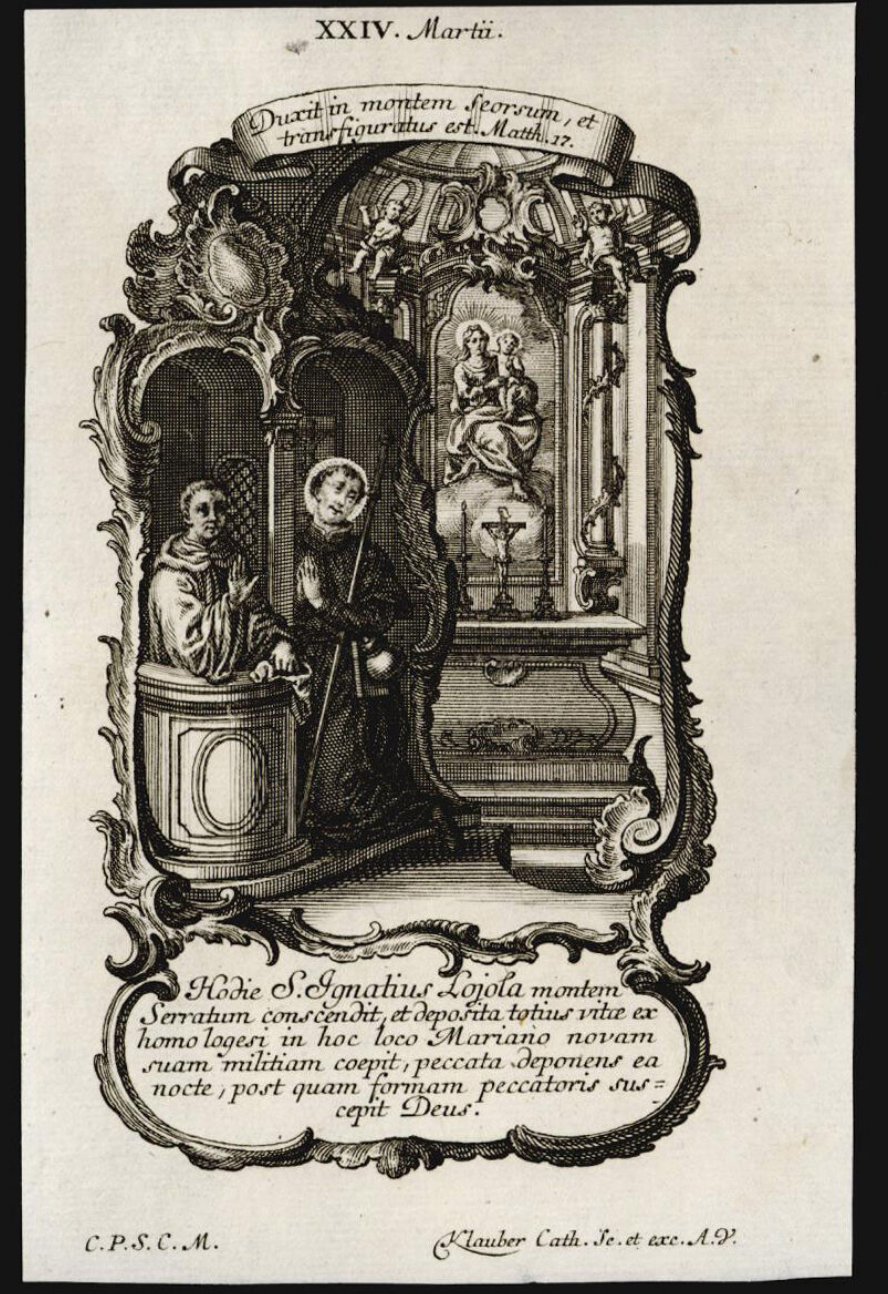 XXIV. Martii.
Duxit in montem seorsum, et
transfiguratus est. Matth. 17.
Hodie S. Ignatius Lojola montem
Serratum conscendit, et deposita totius vitæ ex
homologesi in hoc loco Mariano novam
suam militiam coepit, peccata deponens ea
nocte, post quam formam peccatoris sus=
cepit Deus.
C. P. S. C. M.
Klauber Cath. Sc. et exc. A. V.